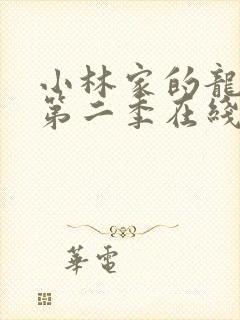 小林家的龍
第二季在綫
華電